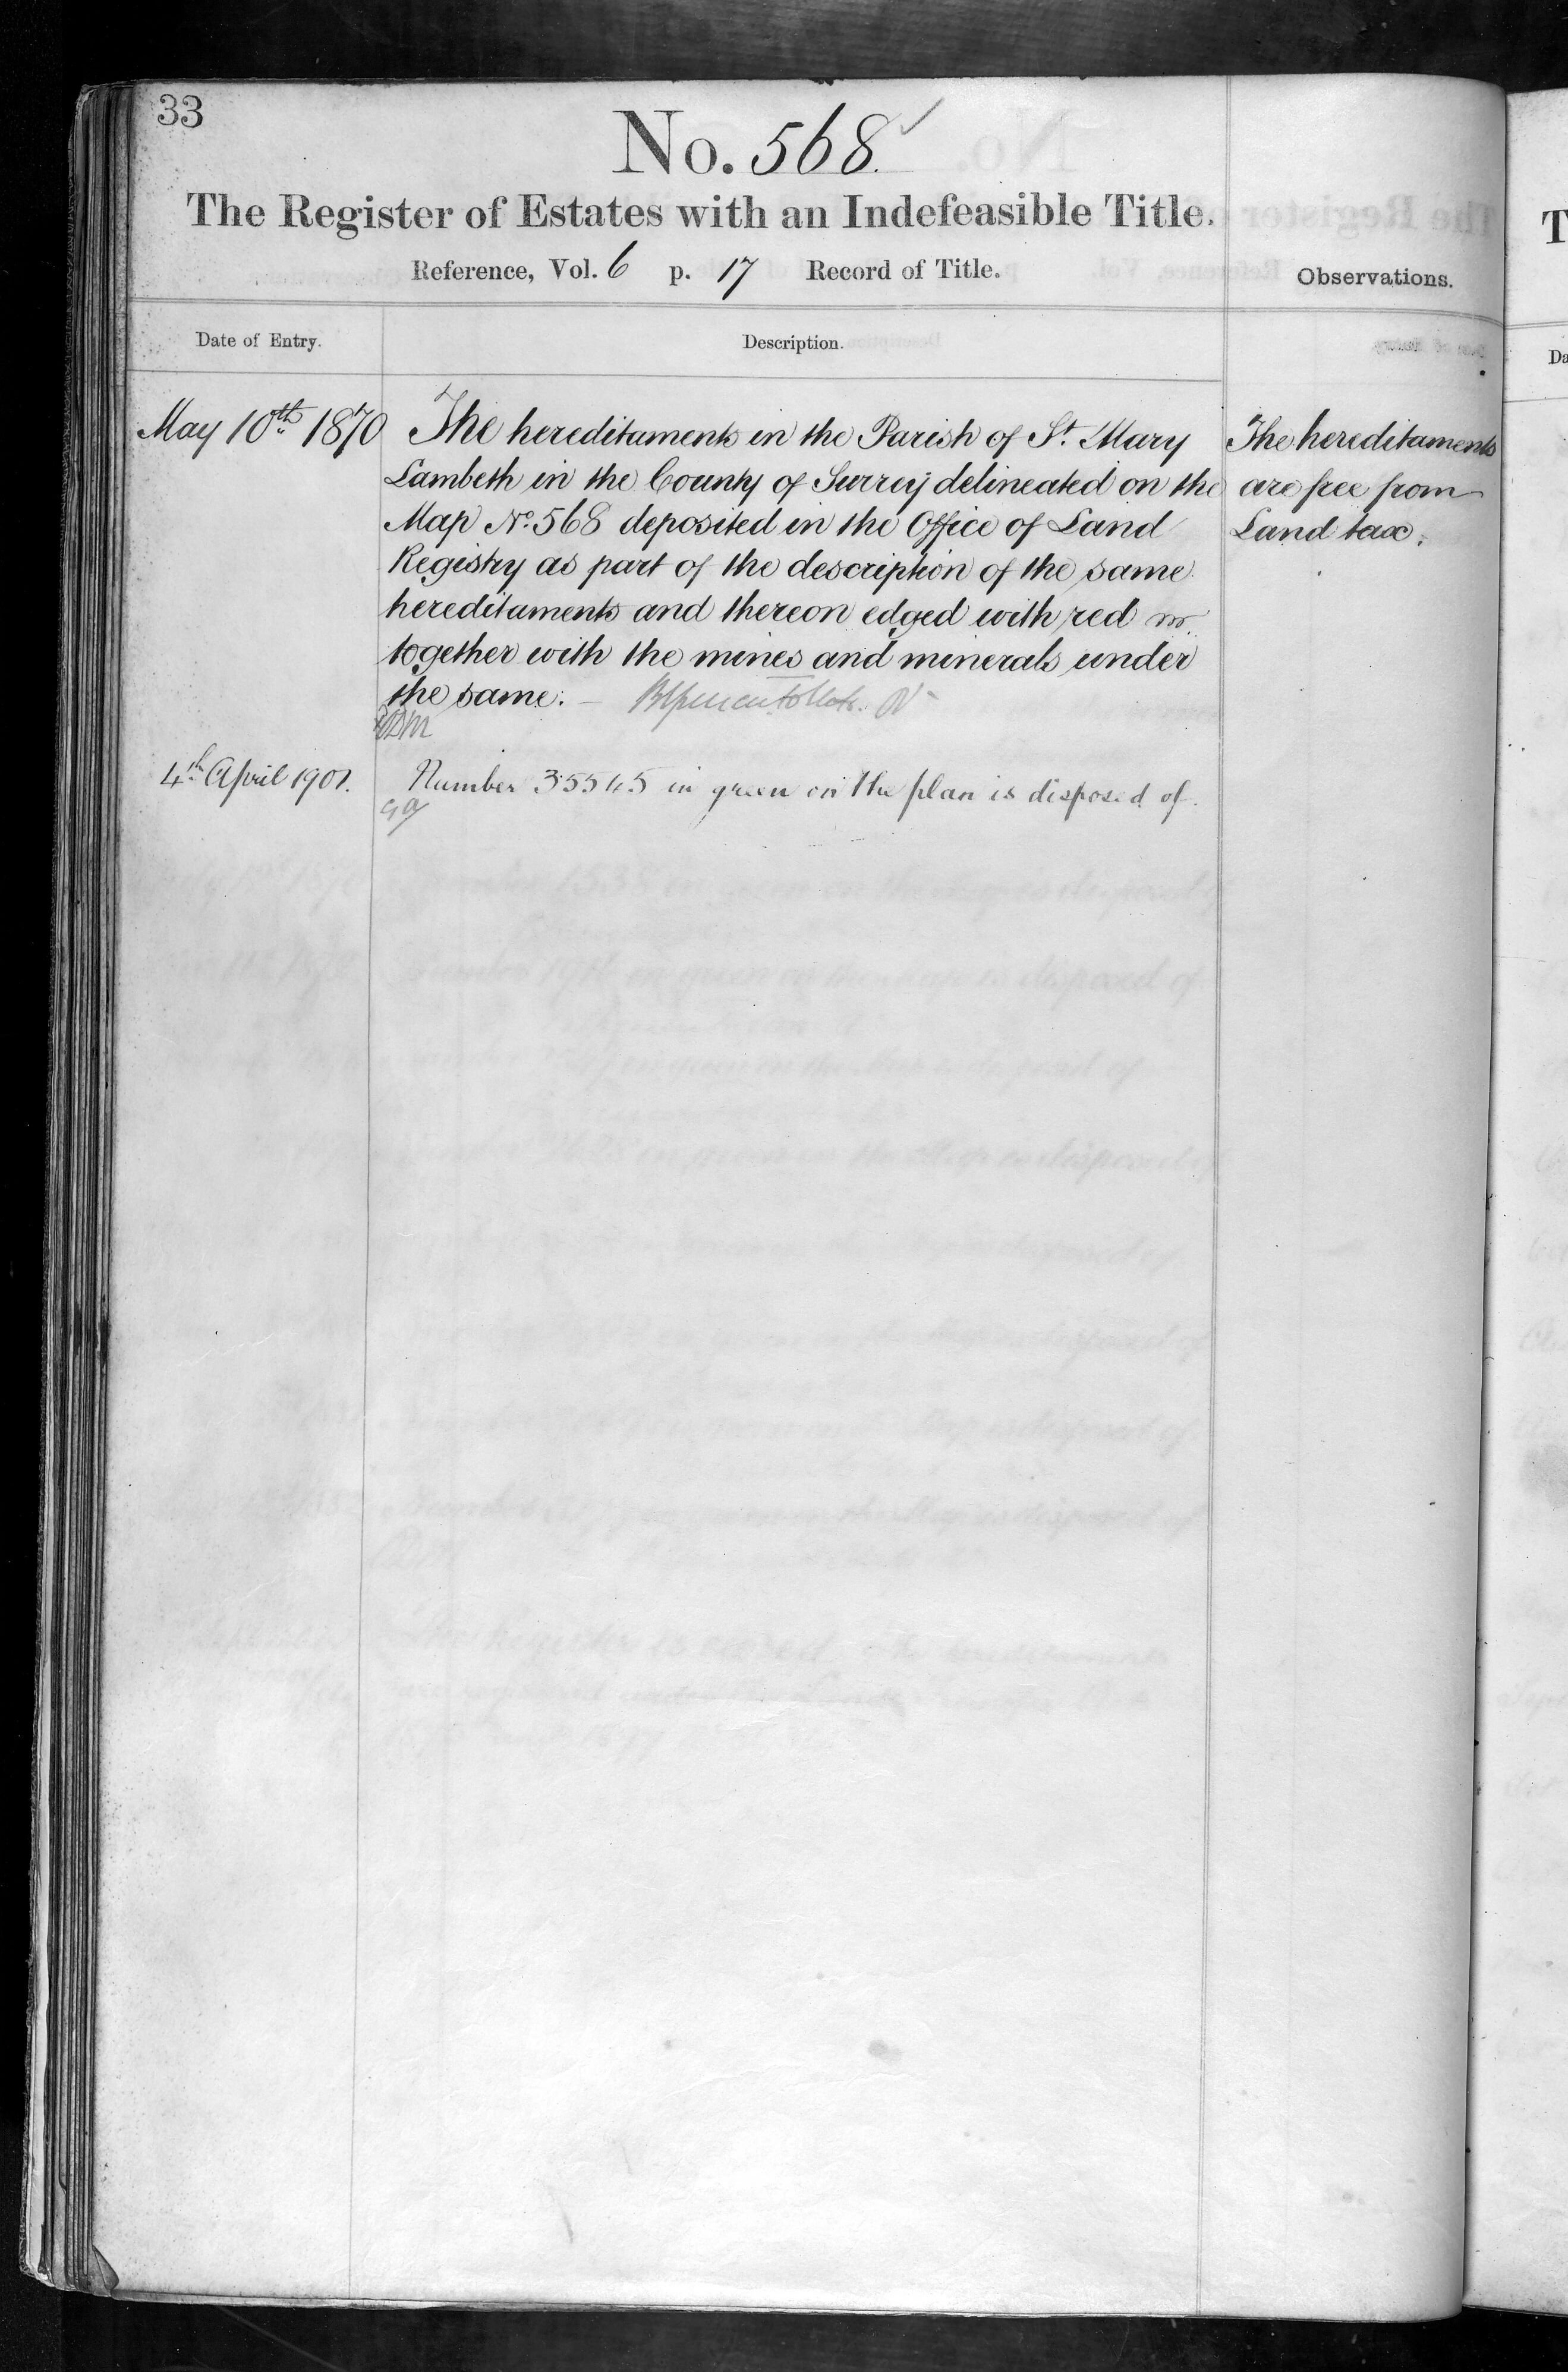 33
No. 568.
The Register of Estates with an Indefeasible Title.
Reference, Vol. 6 p. 17 Record of Title.
Observations.
Date of Entry.
Description.
May 10th 1870
The hereditaments in the Parish of St. Mary
Lambeth in the County of Surrey delineated on the
Map No. 568 deposited in the Office of Land
Registry as part of the description of the same
hereditaments and thereon edged with red
together with the mines and minerals under
the same. –
The hereditaments
are free from
Land tax.
4th April 1901.
Number 35545 in green on the plan is disposed of.